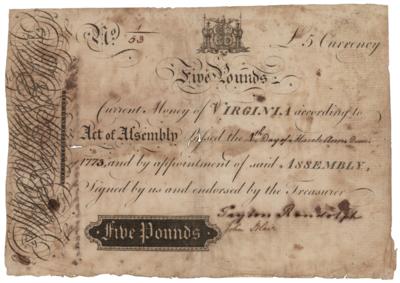 No 1/53 £5 Currency
Five Pounds
Current Money of VIRGINIA according to
Act of Assembly passed the Day of March Anno Dom:
1773, and by appointment of said ASSEMBLY,
Signed by us and endorsed by the Treasurer
Peyton Randolph
John Blair
Five Pounds